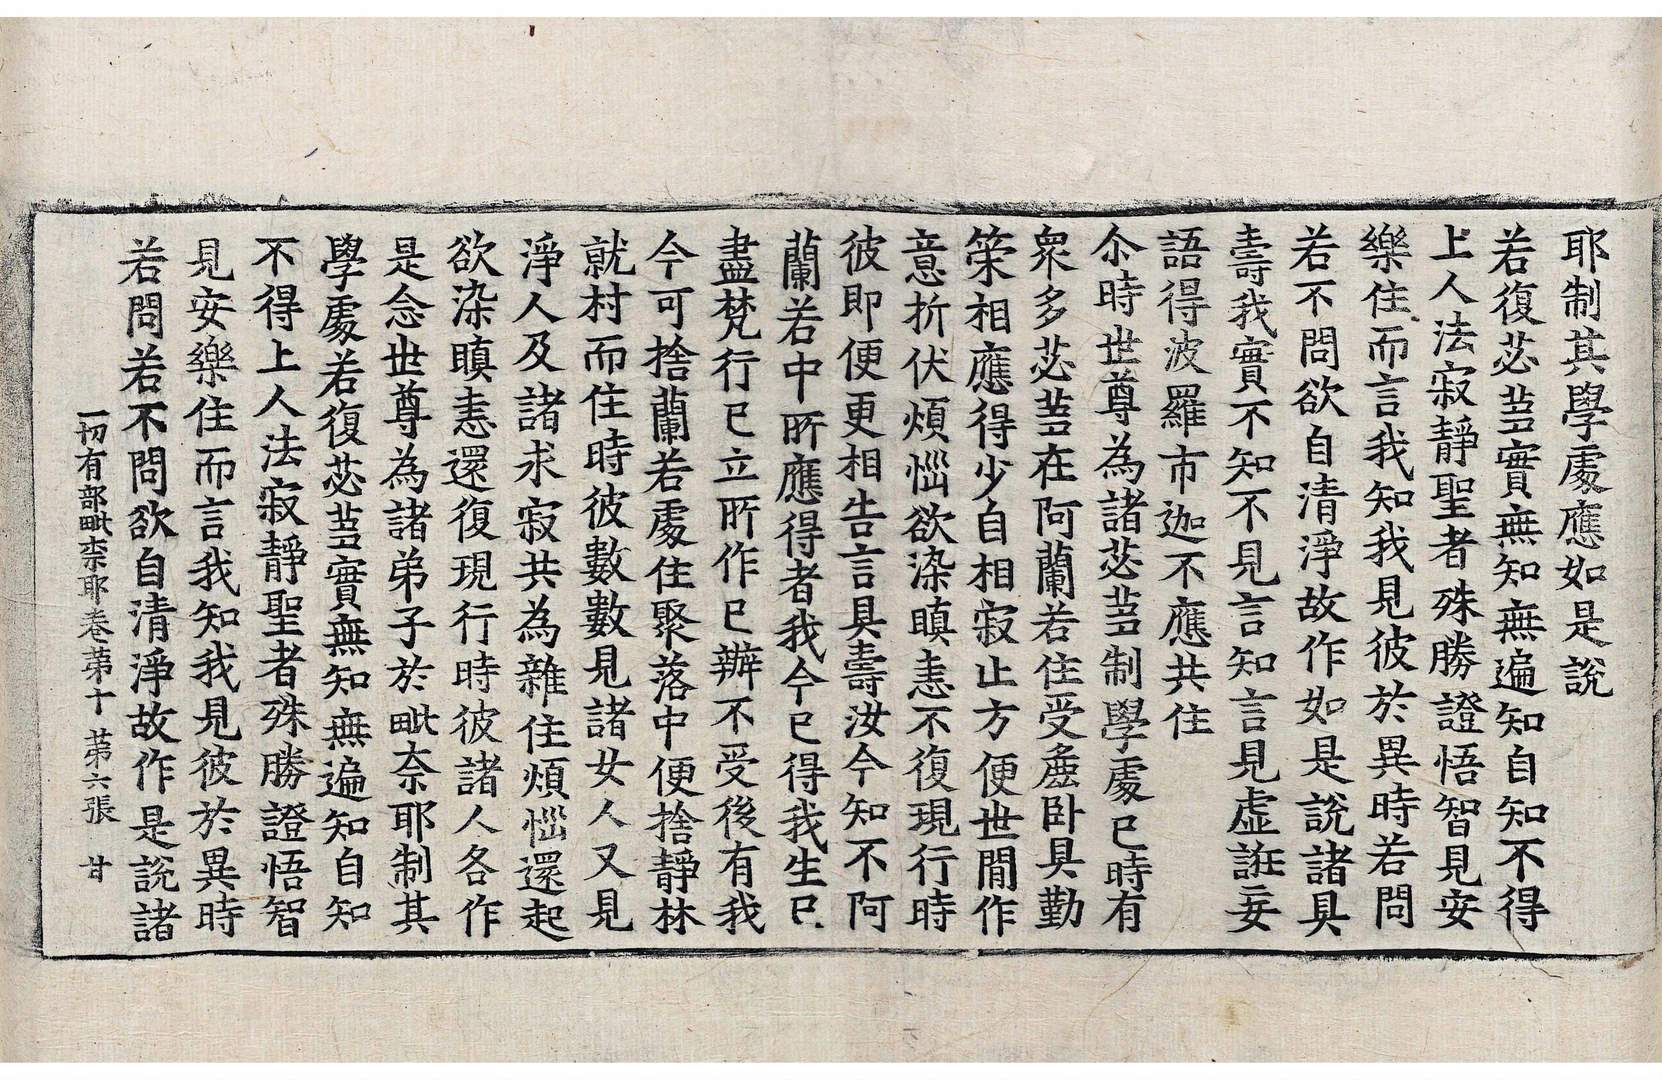 耶制其學處應如是說
若復苾芻實無知無遍知自知不得
上人法寂靜聖者殊勝證悟智見安
樂住而言我知我見彼於異時若問
若不問欲自清淨故作如是說諸具
壽我實不知不見言知言見虛誑妄
語得波羅市迦不應共住
尒時世尊為諸苾芻制學處已時有
衆多苾芻在阿蘭若住受麁卧具勤
策相應得少自相寂止方便世間作
意折伏煩惱欲染瞋恚不復現行時
彼即便更相告言具壽汝今知不阿
蘭若中所應得者我今已得我生已
盡梵行已立所作已辦不受後有我
今可捨蘭若處住聚落中便捨靜林
就村而住時彼數數見諸女人又見
淨人及諸求寂共為雜住煩惱還起
欲染瞋恚還復現行時彼諸人各作
是念世尊為諸弟子於毗奈耶制其
學處若復苾芻實無知無遍知自知
不得上人法寂靜聖者殊勝證悟智
見安樂住而言我知我見彼於異時
若問若不問欲自清淨故作是說諸
一切有部毗柰耶卷苐十　苐六張　甘